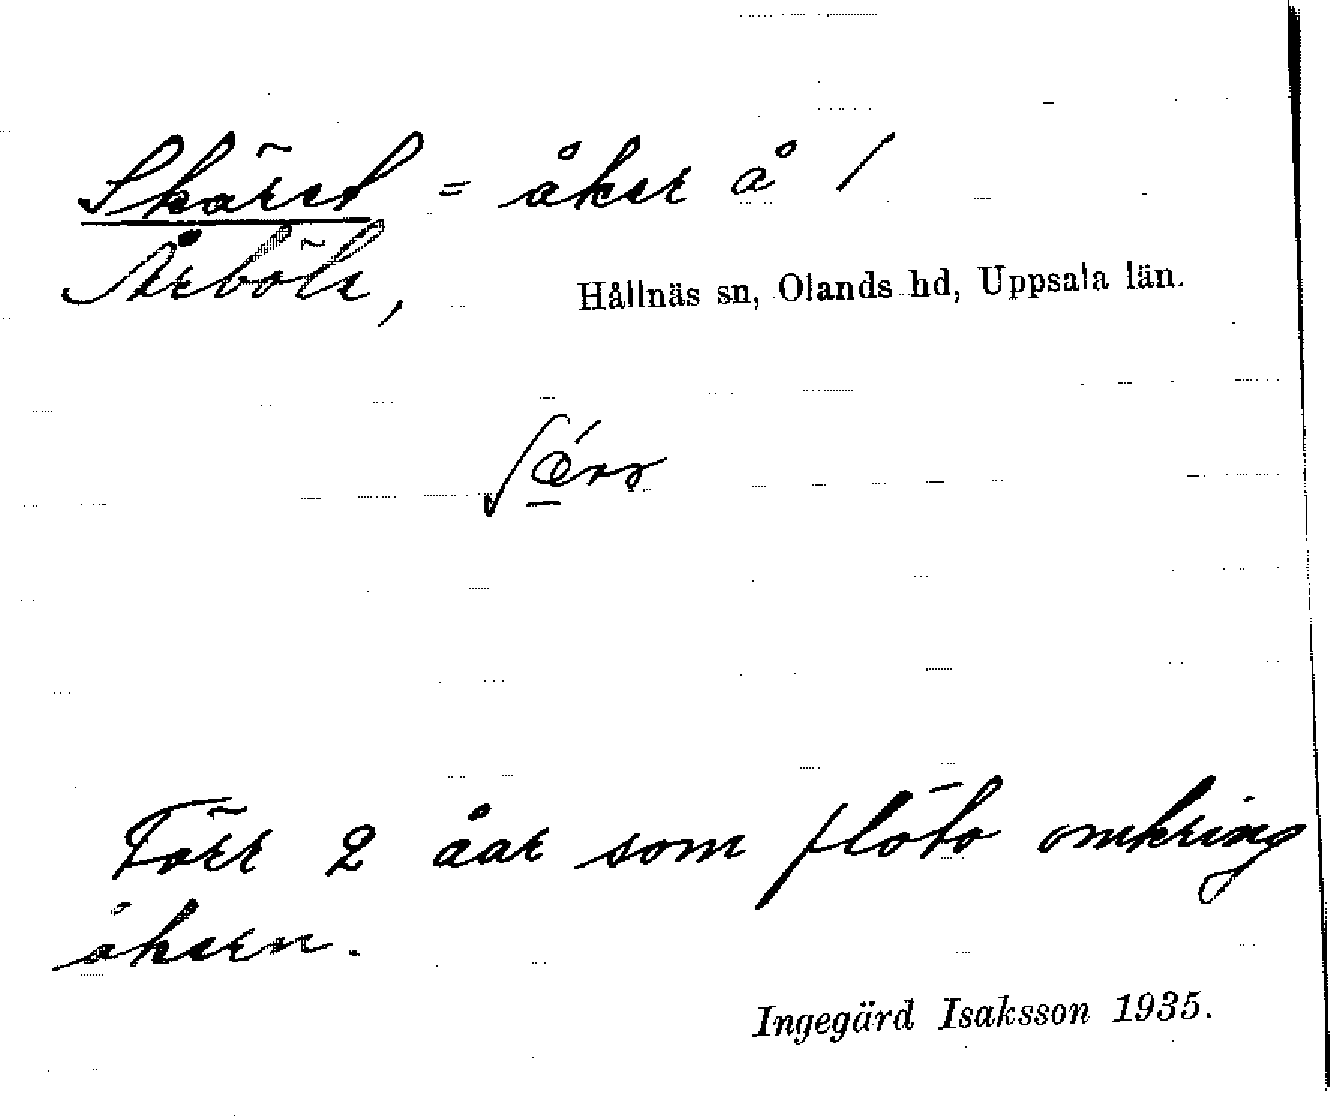 Skäret = åker å /
Årböle,
Hållnäs sn, Olands hd, Uppsala län.
Förr 2 åar som flöto omkring
åkern.
Ingegärd Isaksson 1935.